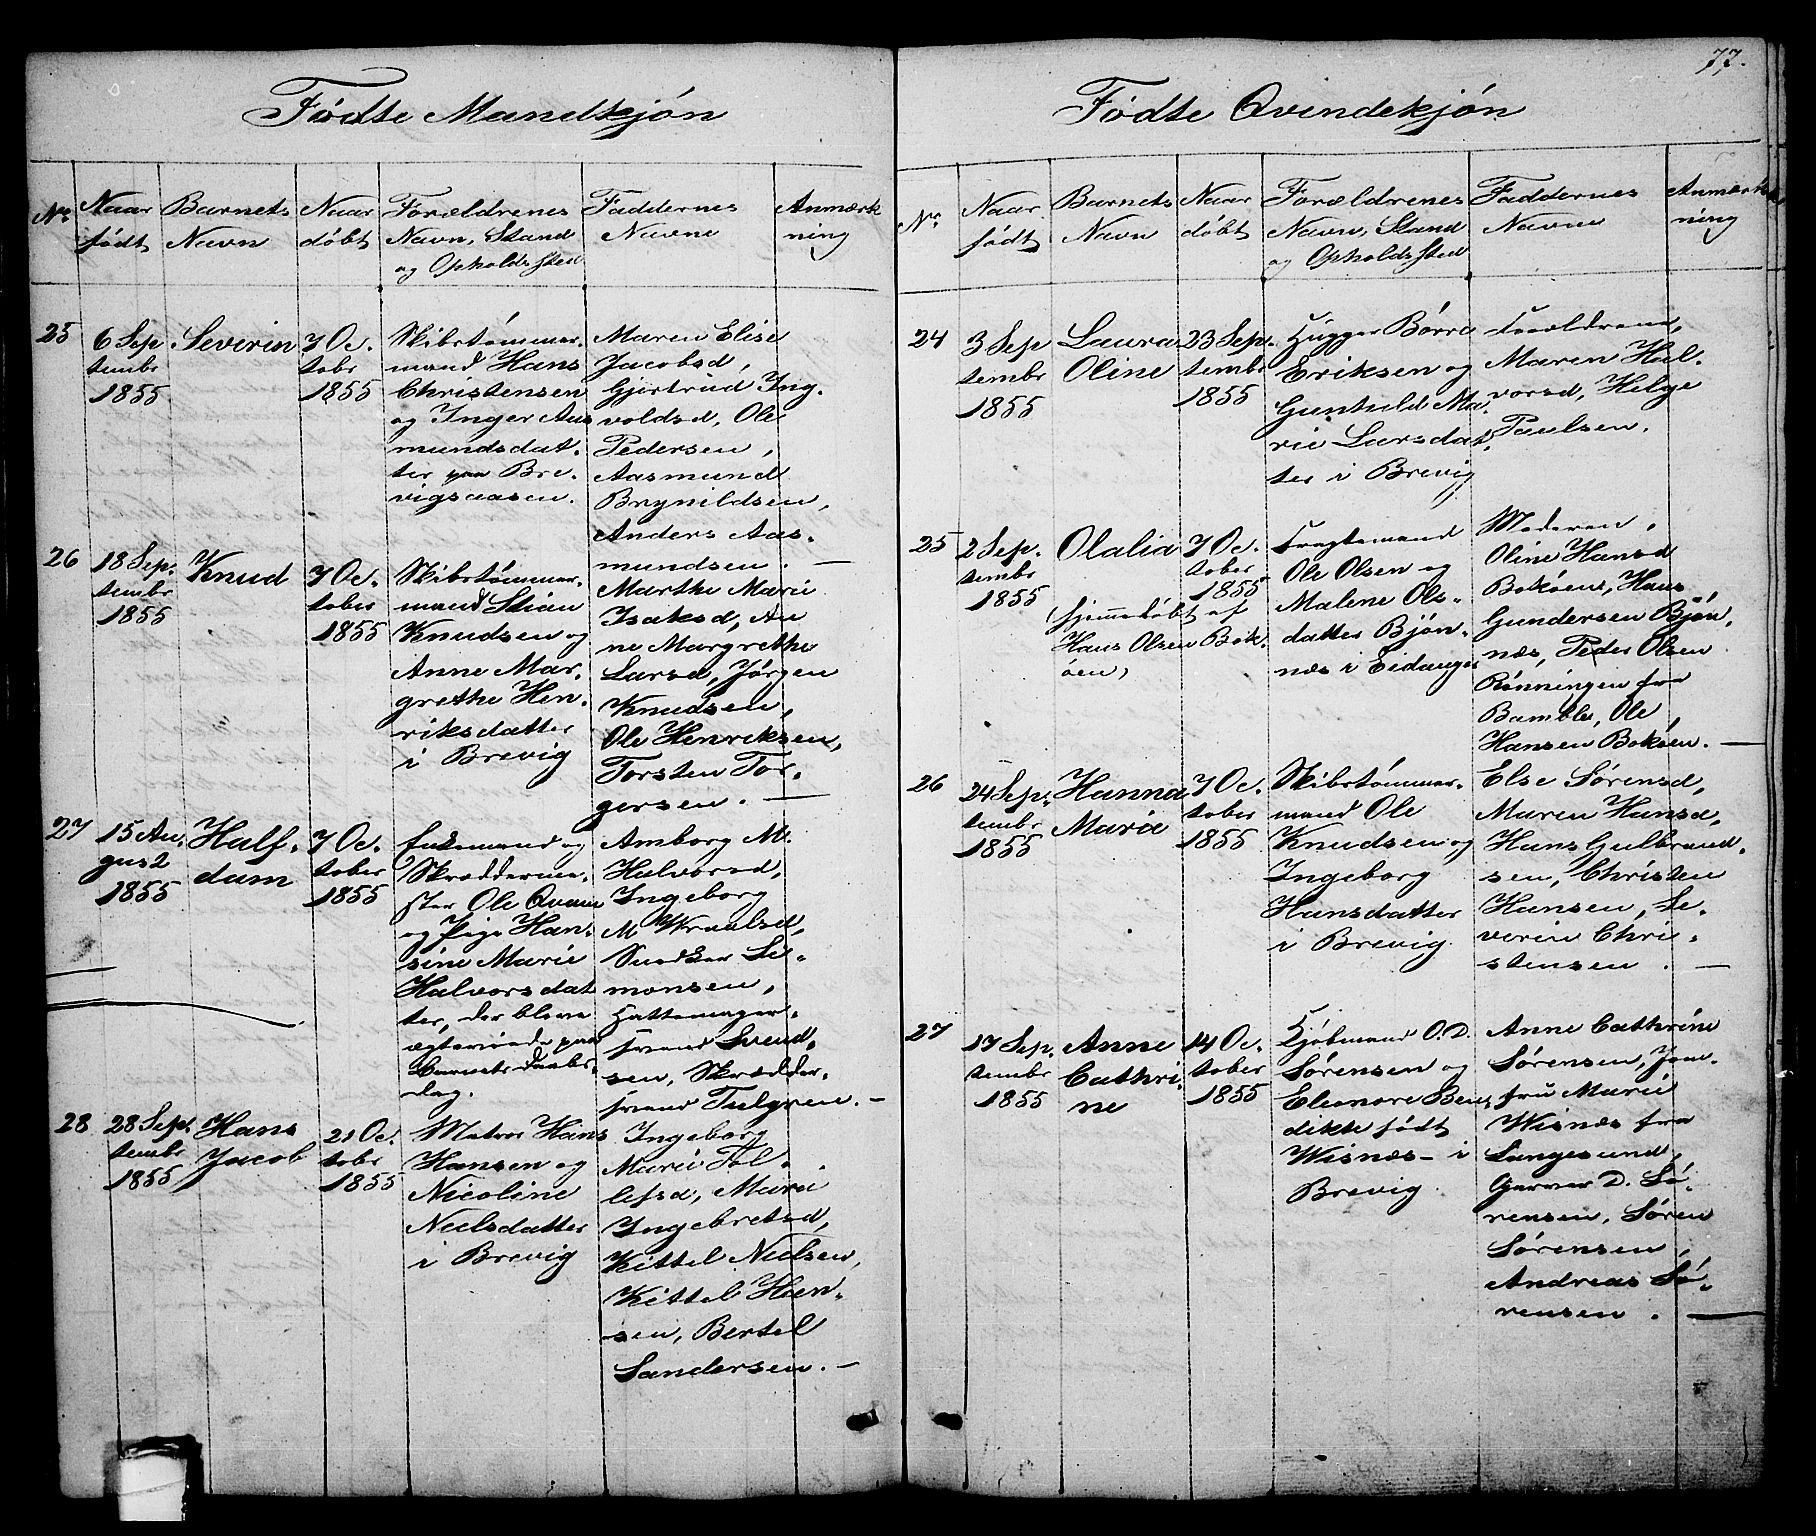 77.
Fødte Mandkjøn
No
Naar født
Barnets Navn
Naar døbt
Forældrenes Navn, Stand og Opholdssted
Faddernes Navne
Anmærkning
25
6 Sep
tembr
1855
Severin
7 Oc.
tobr
1855
Skibstømmer.
mand Hans
Christensen
og Inger Aas
mundsdat.
ter paa Bre.
vigsaasen.
Maren Elise
Jacobsd,
Gjertrud Ing.
voldsd, Ole
Pedersen,
Aasmund
Brynildsen,
Anders Aas.
mundsen. —
26
18 Sep.
tembr
1855
Knud
7 Oc.
tober
1855
Skibstømmer.
mand Stian
Knudsen og
Anne Mar.
grethe Hen.
riksdatter
i Brevig
Marthe Marie
Isaksd, An
ne Margrethe
Larsd, Jørgen
Knudsen,
Ole Henriksen,
Torsten Tor.
gersen. —
27
15 Au.
gust
1855
Half.
dam
7 Oc.
tober
1855
Enkemand og
Skrædderme.
ster Ole Qvam
og Pige Han.
sine Marie
Halvorsdat
ter, der bleve
ægteviede paa
Barnets Daabs.
dag.
Amborg M.
Halvorsd,
Ingeborg
M
Snedker Si.
monsen,
Hattemager.
svend Svend.
sen, Skrædder.
svend Tulgren. —
28
28 Sep.
tembr
1855
Hans
Jacob
21 Oc.
tobr
1855
Matros Hans
Hansen og
Nicoline
Nielsdatter
i Brevig
Ingeborg
Marie Tol.
lefsd, Maria
Ingebretsd,
Kittel Nielsen,
Kittel Han.
sen, Bertel
Sandersen. —
Fødte Qvindekjøn
No
Naar født
Barnets Navn
Naar døbt
Forældrenes Navn, Stand og Opholdssted
Faddernes Navne
Anmærkning
24
3 Sep
tembr
1855
Laura
Oline
23 Sep.
tembr
1855
Hugger Børre
Eriksen og
Gunhild Ma.
rie Larsdat.
ter i Brevig
Forældrene,
Maren Hal.
vorsd, Helge
Paulsen.
25
2 Sep.
tembr
1855
Olalia
7 Oc.
tober
1855
Hjemmedøbt af
Hans Olsen Bok.
øen,
Fragtemand
Ole Olsen og
Malene Ols.
datter Bjøn.
næs i Eidanger
Moderen,
Oline Hansd
Bokøen, Hans
Gundersen Bjøn.
næs, Peder Olsen
Rønningen fra
Bamble, Ole
Hansen Bokøen. —
26
24 Sep.
tembr
1855
Hanna
Maria
7 Oc.
tober
1855
Skibstømmer.
mand Ole
Knudsen og
Ingeborg
Hansdatter
i Brevig
Else Sørensd,
Maren Hansd,
Hans Gulbrand.
sen, Christen
Hansen, Se.
verin Chri.
stensen. —
27
17 Sep.
tembr
1855
Anne
Cathri.
ne
14 Oc.
tober
1855
Kjøbmand O. D.
Sørensen og
Eleonore Bene
dikte født
Wisnæs - i
Brevig
Anne Cathrine
Sørensen, Jom.
fru Marie
Wisnæs fra
Langesund,
Garver D. Sø.
rensen, Søren
Sørensen,
Andreas Sø.
rensen. —